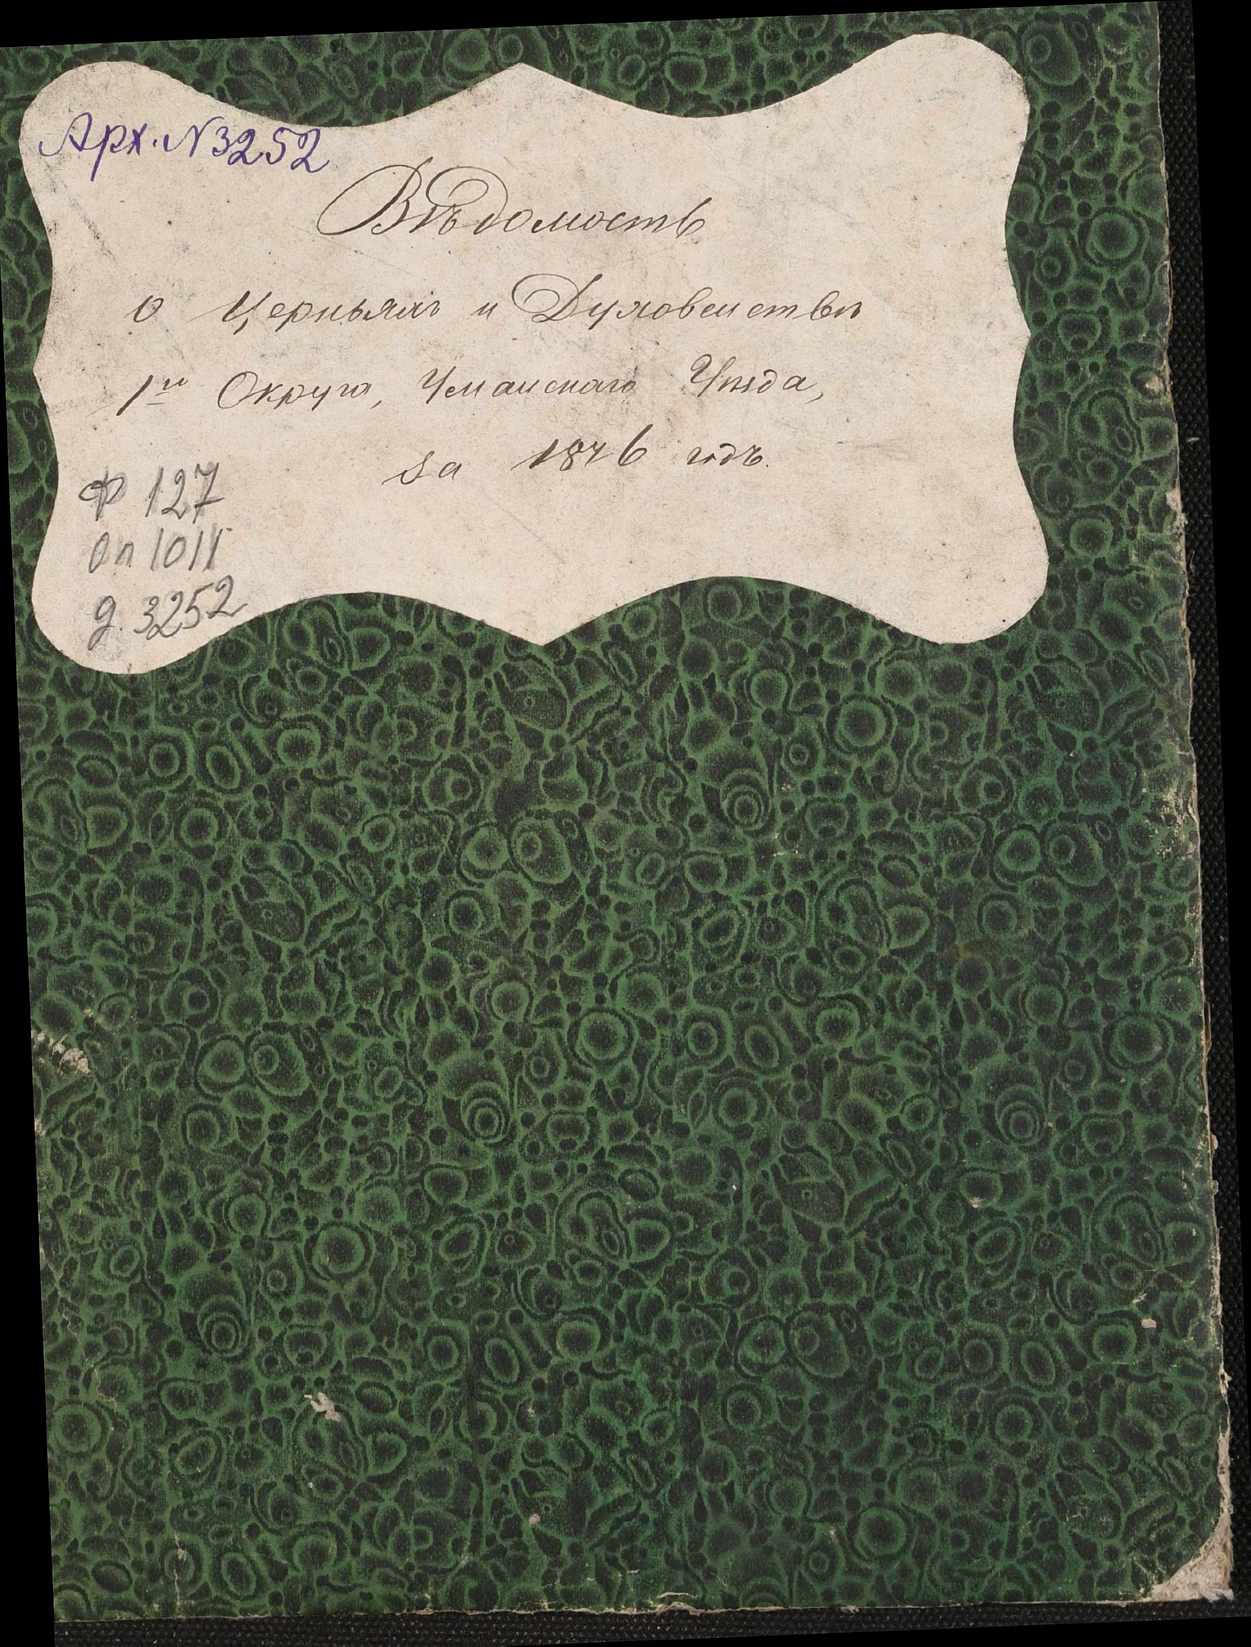 Арх. N 3252
Вѣдомость
о Церквяхъ и Духовенствѣ
1го Округа, Уманскаго Уѣзда,
за 1876 годъ.
Ф 127
Оп 1011
д. 3252